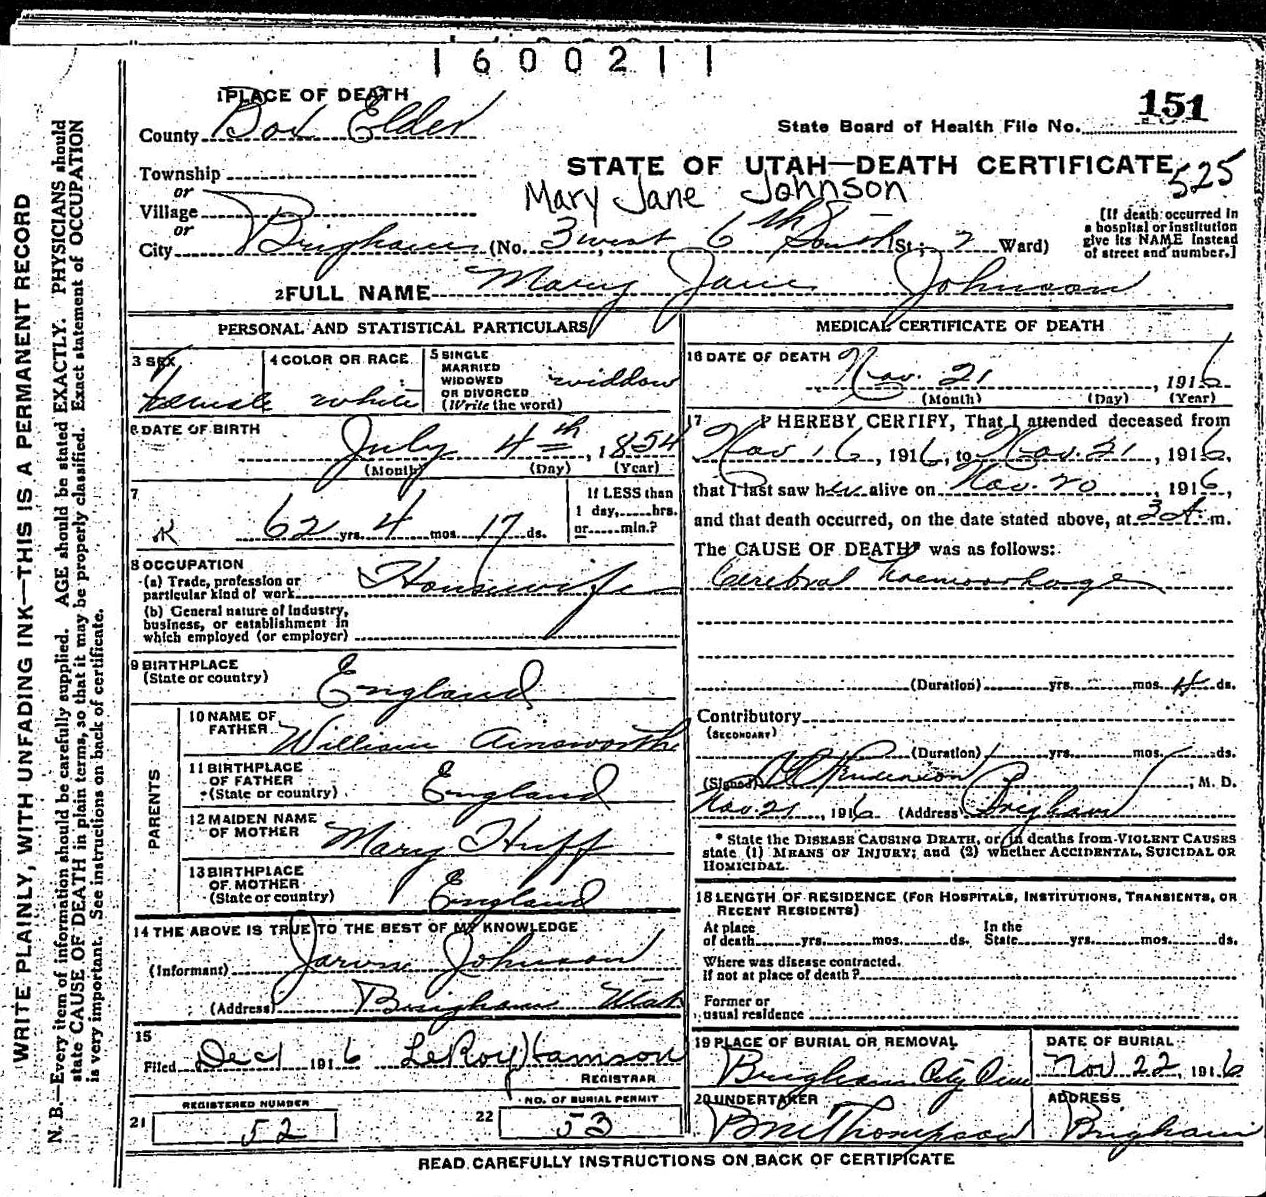 1600211
1 PLACE OF DEATH
151
County Box Elder
State Board of Health File No.
Township
STATE OF UTAH—DEATH CERTIFICATE
525
or
Mary Jane Johnson
Village
or
City Brigham (No. 3 west 6th South St; 2 Ward)
[If death occurred in
a hospital or institution
give its NAME instead
of street and number.]
2 FULL NAME Mary Jane Johnson
PERSONAL AND STATISTICAL PARTICULARS
3 SEX
Female
4 COLOR OR RACE
white
5 SINGLE
MARRIED
WIDOWED
OR DIVORCED
(Write the word)
widdow
6 DATE OF BIRTH
July 4th, 1854
(Month) (Day) (Year)
7
62 yrs. 4 mos. 17 ds.
If LESS than
1 day,......hrs.
or......min.?
8 OCCUPATION
(a) Trade, profession or
particular kind of work Housewife
(b) General nature of Industry,
business, or establishment in
which employed (or employer)
9 BIRTHPLACE
(State or country) England
PARENTS
10 NAME OF
FATHER William Ainsworth
11 BIRTHPLACE
OF FATHER
(State or country) England
12 MAIDEN NAME
OF MOTHER Mary Huff
13 BIRTHPLACE
OF MOTHER
(State or country) England
14 THE ABOVE IS TRUE TO THE BEST OF MY KNOWLEDGE
(Informant) Johnson
(Address) Brigham Utah
15
Filed Dec 1 1916 LeRoy
REGISTRAR
REGISTERED NUMBER
21 52
NO. OF BURIAL PERMIT
22 53
MEDICAL CERTIFICATE OF DEATH
16 DATE OF DEATH
Nov. 21, 1916
(Month) (Day) (Year)
17 I HEREBY CERTIFY, That I attended deceased from
Nov 16, 1916, to Nov. 21, 1916,
that I last saw her alive on Nov. 20, 1916,
and that death occurred, on the date stated above, at 3 A. m.
The CAUSE OF DEATH* was as follows:
Cerebral haemorrhage
(Duration) yrs. mos. ds.
Contributory
(SECONDARY)
(Duration) yrs. mos. ds.
(Signed) , M. D.
Nov. 21, 1916 (Address) Brigham
* State the DISEASE CAUSING DEATH, or, in deaths from VIOLENT CAUSES
state (1) MEANS OF INJURY; and (2) whether ACCIDENTAL, SUICIDAL OR
HOMICIDAL.
18 LENGTH OF RESIDENCE (FOR HOSPITALS, INSTITUTIONS, TRANSIENTS, OR
RECENT RESIDENTS)
At place In the
of death yrs. mos. ds. State yrs. mos. ds.
Where was disease contracted.
if not at place of death?
Former or
usual residence
19 PLACE OF BURIAL OR REMOVAL
Brigham City
DATE OF BURIAL
Nov 22, 1916
20 UNDERTAKER
Thompson
ADDRESS
Brigham
READ CAREFULLY INSTRUCTIONS ON BACK OF CERTIFICATE
WRITE PLAINLY, WITH UNFADING INK—THIS IS A PERMANENT RECORD
N. B.—Every item of information should be carefully supplied. AGE should be stated EXACTLY. PHYSICIANS should
state CAUSE OF DEATH in plain terms, so that it may be properly classified. Exact statement of OCCUPATION
is very important. See instructions on back of certificate.